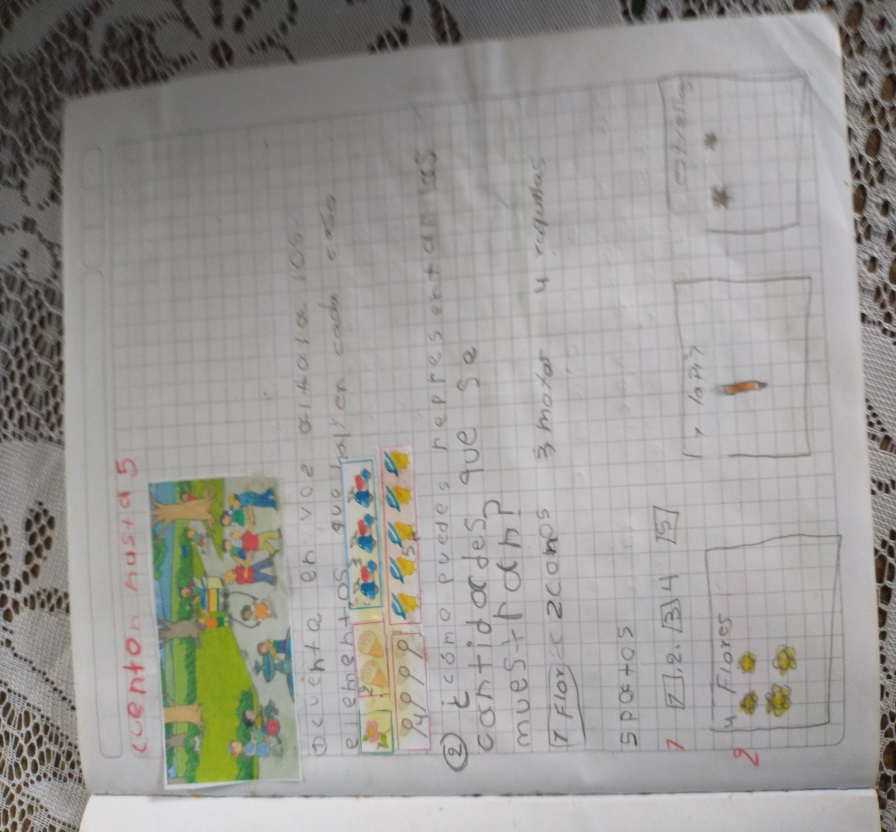 cuenton hasta 5
① cuenta en voz alta los
elementos que hay en cada caso
1 2 3
4 5
② ¿cómo puedes representar las
cantidades que se
muestran?
1 Flor 2 conos 3 motos 4 raquetas
5 patos
1 1 2 3 4 5
2 4 Flores 1 lapiz